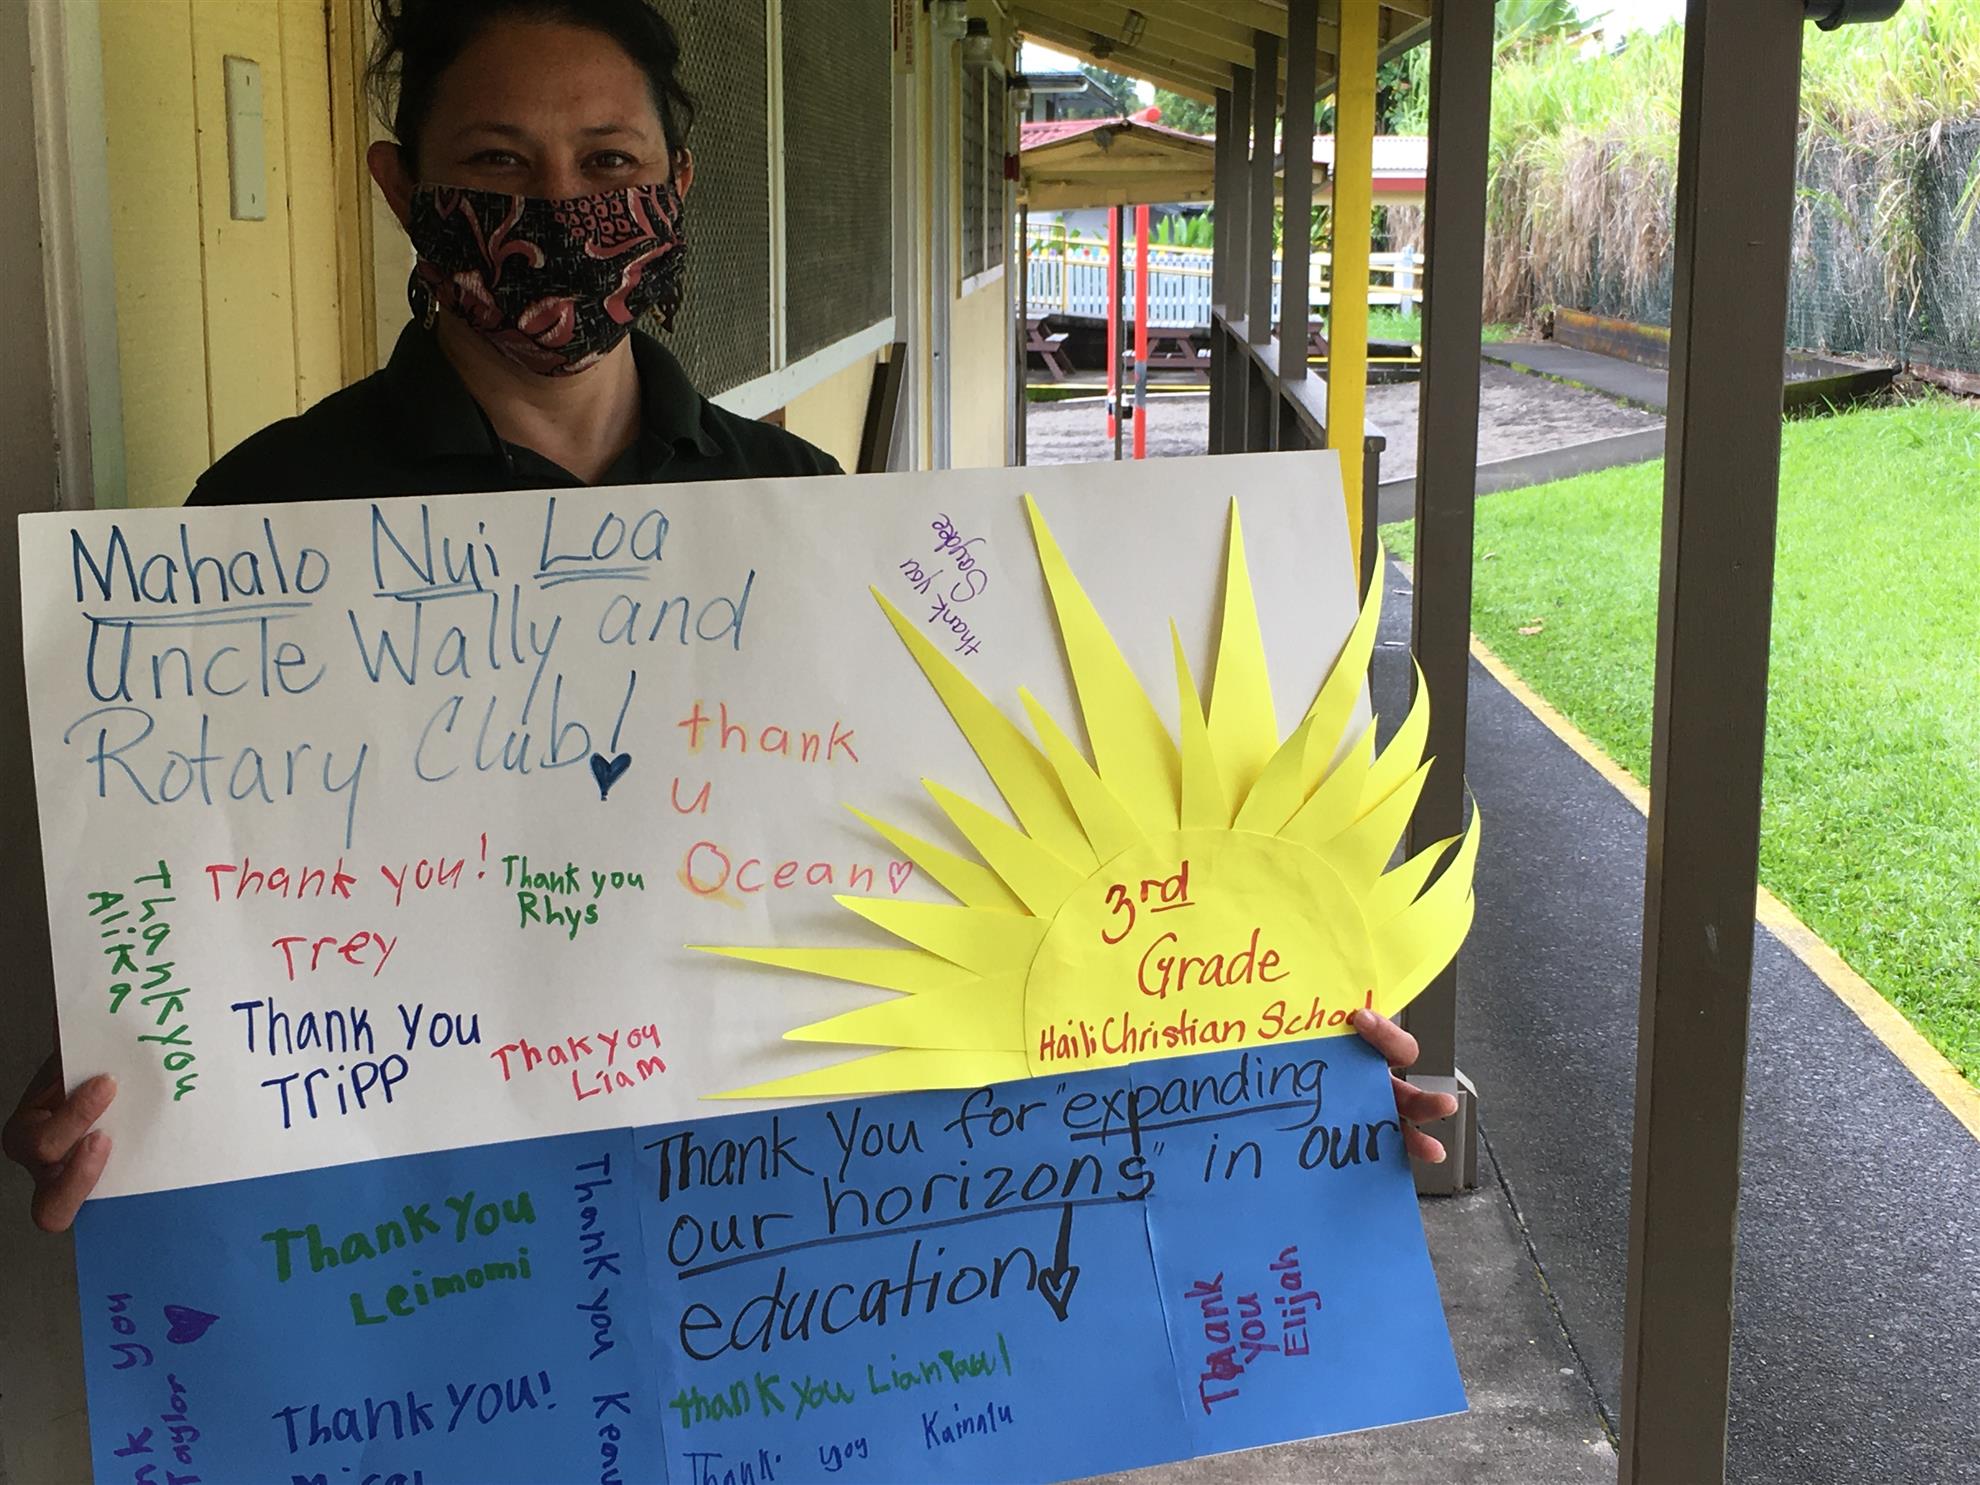 Mahalo Nui Loa
Uncle Wally and
Rotary Club!
thank you
Saydee
thank
u
Ocean
Thank you
Alika
Thank you!
Trey
Thank you
Rhys
Thank you
Tripp
Thak you
Liam
3rd
Grade
Haili Christian School
Thank you for "expanding
our horizons" in our
education!
Thank you
Leimomi
Thank you
you
Taylor
Thank you!
thank you Lian
Thank you Kainalu
Thank
You
Elijah